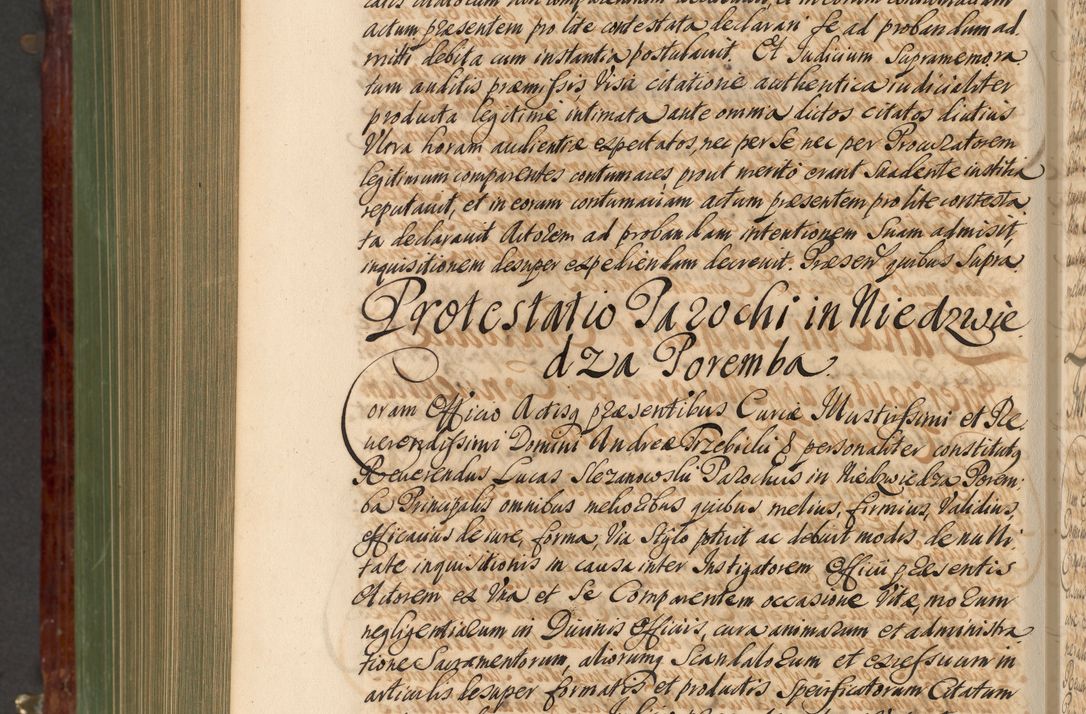 actum præsentem pro lite contestata declarari se ad probandum ad
mitti debita cum instantia postulavit. Et Judicium Supramemora
tum auditis præmissis, Visa citatione authentica iudicialiter
producta legitime intimata ante omnia dictos citatos diutius
Ultra horam audientiæ expectatos, nec per se nec per Procuratorem
legitimum comparentes contumaces prout merito erant Suadente iustitia
reputavit, et in eorum contumaciam actum præsentem pro lite contesta
ta declaravit Actorem ad probandam intentionem Suam admisit,
inquisitionem desuper expediendam decrevit. Præsen quibus Supra
Protestatio Parochi in Niedzwie
dza Poremba
Coram Officio Actisq præsentibus Curiæ Illustrissimi et Re
verendissimi Domini Andreæ Trzebicki & personaliter constitutq
Reverendus Lucas Slezanowski Parochus in Niedzwiedza Porem
ba Principalis omnibus melioribus quibus melius, firmius, Validius,
efficacius de iure, forma, Via Stylo potuit ac debuit modis de nulli
tate inquisitionis in causa inter Instigatorem Officii præsentis
Actorem ex Una et Se Comparentem occasione Vitæ, morum
negligentiarum in Divinis Officiis, cura animarum et administra
tione Sacramentorum, aliorumq Scandalorum et excessuum in
articulis desuper formatis et productis Specificatorum Citatum